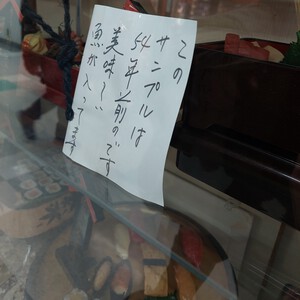 この
サンプルは
54年前のです
美味しい
魚が入ってます